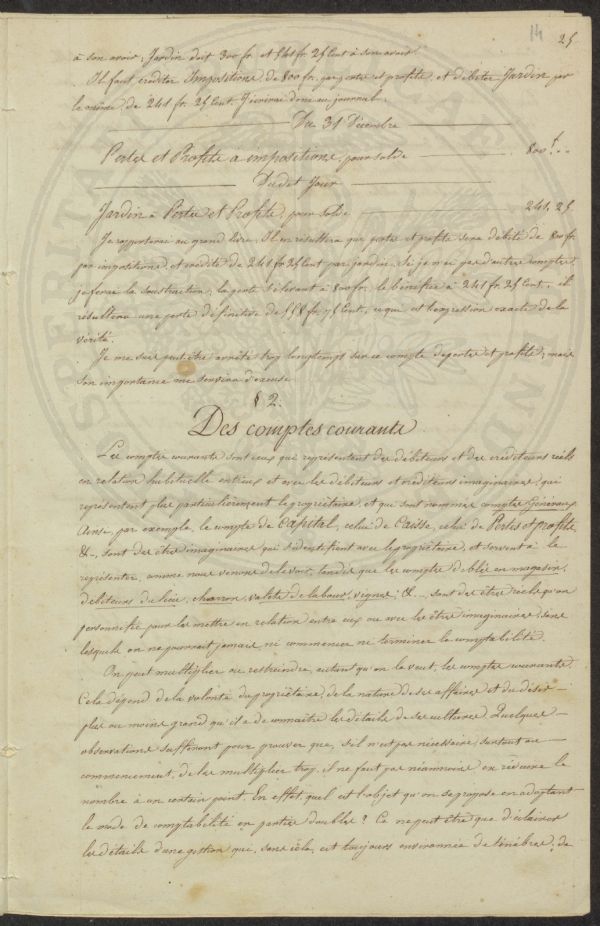 14 25
à son avoir; Jardin doit 300 fr. et 541 fr. 25 Cent à son avoir.
Il faut créditer Impositions, de 800 fr. par perte et profits, et débiter Jardin par
le même, de 241 fr. 25 Cent. J'écrirai donc au journal.
Du 31 Décembre
Pertes et Profits à impositions, pour solde 800 f. "
Dudit Jour
Jardin à Pertes et Profits, pour solde 241. 25
Je rapporterai au grand livre. Il en résultera que pertes et profits sera débité de 800 fr.
par impositions, et crédité de 241 fr 25 Cent par jardin. Si je n'ai pas d'autres comptes,
je ferai la soustraction, la perte s'élevant à 800 fr. le bénéfice à 241 fr. 25 Cent, il
résultera une perte définitive de 558 fr. 75 Cent, ce qui est l'expression exacte de la
vérité.
Je me suis peut-être arrêté trop longtemps sur ce compte de pertes et profits; mais
son importance me servira d'excuse.
§ 2.
Des comptes courants
Les comptes courants sont ceux qui représentent des débiteurs et des créditeurs réels
en relation habituelle entr'eux et avec les débiteurs et créditeurs imaginaires, qui
représentent plus particulièrement le propriétaire, et que sont nommés comptes Généraux
Ainsi, par exemple, le compte de Capital, celui de Caisse, celui de Pertes et profits
&c, sont des êtres imaginaires qui s'identifient avec le propriétaire, et servent à le
représenter, comme nous venons de le voir, tandis que les comptes de blé en magasin,
débiteurs du lieu, charron, valets de labour, vignes, &c, sont des êtres réels qu'on
personnifie pour les mettre en relation entre eux ou avec les êtres imaginaires, sans
lesquels on ne pourrait jamais, ni commencer ni terminer la comptabilité.
On peut multiplier ou restreindre, autant qu'on le veut, les comptes courants.
Cela dépend de la volonté du propriétaire, de la nature de ses affaires et du désir
plus ou moins grand qu'il a de connaître les détails de ses cultures. Quelques
observations suffiront pour prouver que, s'il n'est pas nécessaire, surtout au
commencement, de les multiplier trop, il ne faut pas néanmoins en réduire le
nombre à un certain point. En effet, quel est l'objet qu'on se propose en adoptant
le mode de comptabilité en parties doubles? Ce ne peut être que d'éclairer
les détails d'une gestion qui, sans cela, est toujours environnée de ténèbres, de